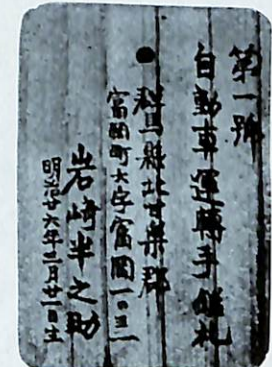 第一號
自動車運轉手鑑札
群馬縣北甘樂郡
富岡町大字富岡一〇三一
岩崎半之助
明治廿六年二月廿一日生